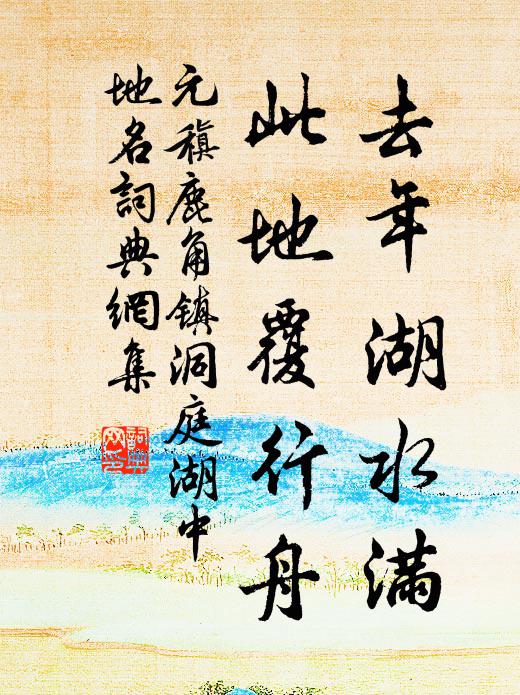 去年湖水滿
此地覆行舟
元稹鹿角镇洞庭湖中
地名詞典網集